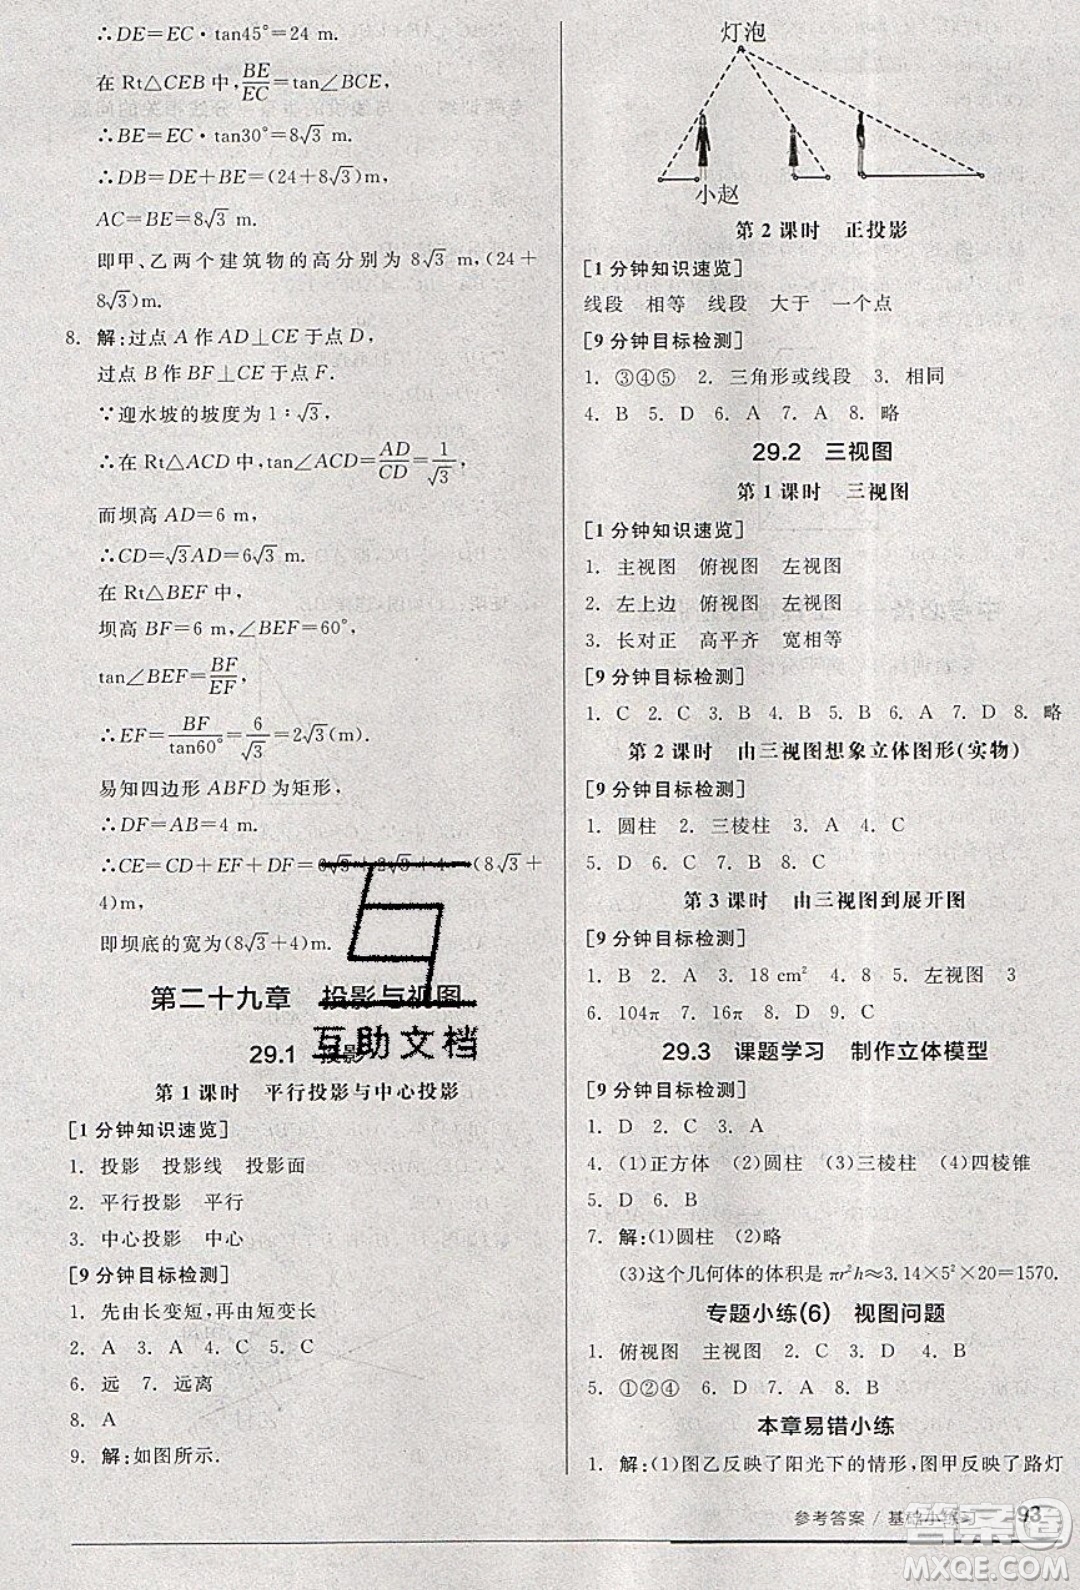 ∴DE=EC·tan45°=24 m.
在 Rt△CEB 中,BE/EC=tan∠BCE,
∴BE=EC·tan30°=8√3 m.
∴DB=DE+BE=(24+8√3)m,
AC=BE=8√3 m.
即甲、乙两个建筑物的高分别为 8√3 m,(24+
8√3)m.
8. 解:过点 A 作 AD⊥CE 于点 D,
过点 B 作 BF⊥CE 于点 F.
∵迎水坡的坡度为 1∶√3,
∴在 Rt△ACD 中,tan∠ACD=AD/CD=1/√3,
而坝高 AD=6 m,
∴CD=√3AD=6√3 m.
在 Rt△BEF 中,
坝高 BF=6 m,∠BEF=60°,
tan∠BEF=BF/EF,
∴EF=BF/tan60°=6/√3=2√3 m.
易知四边形 ABFD 为矩形,
∴DF=AB=4 m.
∴CE=CD+EF+DF=6√3+2√3+4=(8√3+
4)m,
即坝底的宽为(8√3+4)m.
第二十九章 投影与视图
29.1 投影
互助文档
第 1 课时 平行投影与中心投影
[1 分钟知识速览]
1. 投影 投影线 投影面
2. 平行投影 平行
3. 中心投影 中心
[9 分钟目标检测]
1. 先由长变短,再由短变长
2. A 3. A 4. C 5. C
6. 远 7. 远离
8. A
9. 解:如图所示.
灯泡
小赵
第 2 课时 正投影
[1 分钟知识速览]
线段 相等 线段 大于 一个点
[9 分钟目标检测]
1. ③④⑤ 2. 三角形或线段 3. 相同
4. B 5. D 6. A 7. A 8. 略
29.2 三视图
第 1 课时 三视图
[1 分钟知识速览]
1. 主视图 俯视图 左视图
2. 左上边 俯视图 左视图
3. 长对正 高平齐 宽相等
[9 分钟目标检测]
1. C 2. C 3. D 4. B 5. B 6. A 7. D 8. 略
第 2 课时 由三视图想象立体图形(实物)
[9 分钟目标检测]
1. 圆柱 2. 三棱柱 3. A 4. C
5. D 6. D 7. B 8. C
第 3 课时 由三视图到展开图
[9 分钟目标检测]
1. B 2. A 3. 18 cm² 4. 2 5. 左视图 3
6. 104π 7. A 8. D 9. C
29.3 课题学习 制作立体模型
[9 分钟目标检测]
1. D 2. D 3. A
4. (1)正方体 (2)圆柱 (3)三棱柱 (4)四棱锥
5. D 6. B
7. 解:(1)圆柱 (2)略
(3)这个几何体的体积是 πr²h≈3.14×5²×20=1570.
专题小练(6) 视图问题
1. 俯视图 主视图 2. C 3. D 4. B
5. ①②④ 6. D 7. A 8. B
本章易错小练
1. 解:(1)图乙反映了阳光下的情形,图甲反映了路灯
参考答案 / 基础小练习 93
答案圈
MXQE.COM